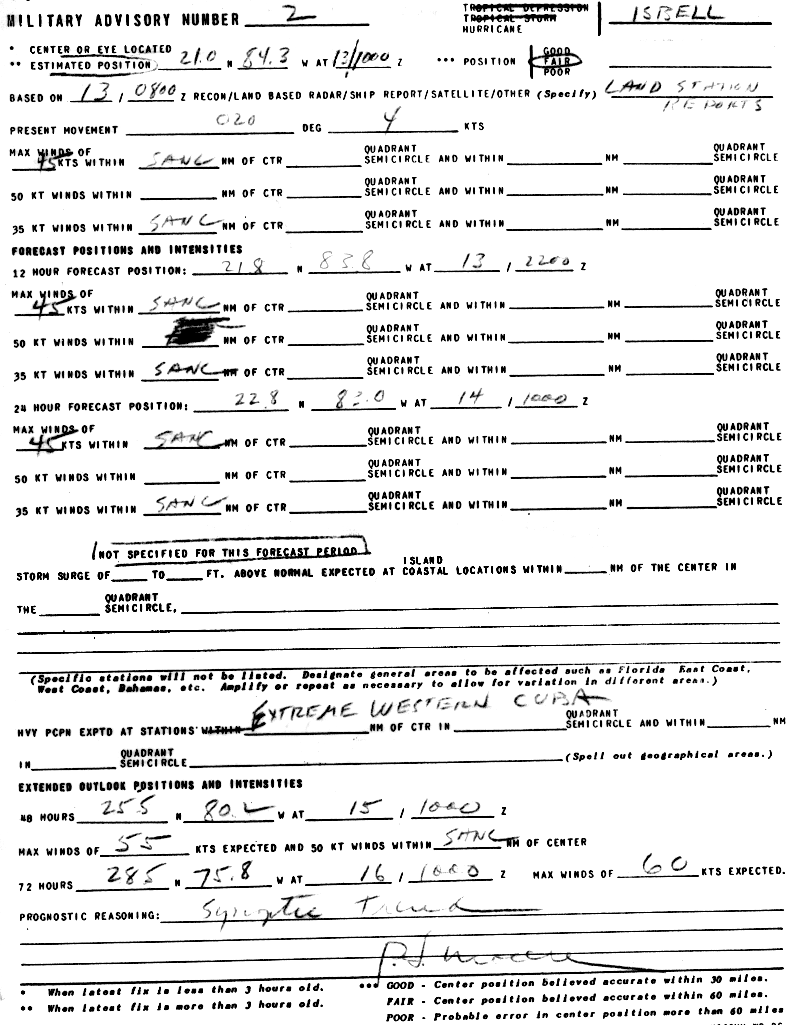 MILITARY ADVISORY NUMBER 2 TROPICAL DEPRESSION TROPICAL STORM HURRICANE ISBELL
* CENTER OR EYE LOCATED
** ESTIMATED POSITION 21.0 N 84.3 W AT 13/1000 Z *** POSITION GOOD FAIR POOR
BASED ON 13 / 0800 Z RECON/LAND BASED RADAR/SHIP REPORT/SATELLITE/OTHER (Specify) LAND STATION REPORTS
PRESENT MOVEMENT 020 DEG 4 KTS
MAX WINDS OF
45 KTS WITHIN SANC NM OF CTR QUADRANT SEMICIRCLE AND WITHIN NM QUADRANT SEMICIRCLE
50 KT WINDS WITHIN NM OF CTR QUADRANT SEMICIRCLE AND WITHIN NM QUADRANT SEMICIRCLE
35 KT WINDS WITHIN SANC NM OF CTR QUADRANT SEMICIRCLE AND WITHIN NM QUADRANT SEMICIRCLE
FORECAST POSITIONS AND INTENSITIES
12 HOUR FORECAST POSITION: 21.8 N 83.8 W AT 13 / 2200 Z
MAX WINDS OF
45 KTS WITHIN SANC NM OF CTR QUADRANT SEMICIRCLE AND WITHIN NM QUADRANT SEMICIRCLE
50 KT WINDS WITHIN NM OF CTR QUADRANT SEMICIRCLE AND WITHIN NM QUADRANT SEMICIRCLE
35 KT WINDS WITHIN SANC NM OF CTR QUADRANT SEMICIRCLE AND WITHIN NM QUADRANT SEMICIRCLE
24 HOUR FORECAST POSITION: 22.8 N 83.0 W AT 14 / 1000 Z
MAX WINDS OF
45 KTS WITHIN SANC NM OF CTR QUADRANT SEMICIRCLE AND WITHIN NM QUADRANT SEMICIRCLE
50 KT WINDS WITHIN NM OF CTR QUADRANT SEMICIRCLE AND WITHIN NM QUADRANT SEMICIRCLE
35 KT WINDS WITHIN SANC NM OF CTR QUADRANT SEMICIRCLE AND WITHIN NM QUADRANT SEMICIRCLE
NOT SPECIFIED FOR THIS FORECAST PERIOD
STORM SURGE OF TO FT. ABOVE NORMAL EXPECTED AT ISLAND COASTAL LOCATIONS WITHIN NM OF THE CENTER IN
THE QUADRANT SEMICIRCLE,
(Specific stations will not be listed. Designate general areas to be affected such as Florida East Coast,
West Coast, Bahamas, etc. Amplify or repeat as necessary to allow for variation in different areas.)
HVY PCPN EXPTD AT STATIONS WITHIN EXTREME WESTERN CUBA NM OF CTR IN QUADRANT SEMICIRCLE AND WITHIN NM
IN QUADRANT SEMICIRCLE (Spell out geographical areas.)
EXTENDED OUTLOOK POSITIONS AND INTENSITIES
48 HOURS 255 N 80.2 W AT 15 / 1000 Z
MAX WINDS OF 55 KTS EXPECTED AND 50 KT WINDS WITHIN SANC NM OF CENTER
72 HOURS 285 N 75.8 W AT 16 / 1000 Z MAX WINDS OF 60 KTS EXPECTED.
PROGNOSTIC REASONING: Synoptic Trend
* When latest fix is less than 3 hours old. *** GOOD - Center position believed accurate within 30 miles.
** When latest fix is more than 3 hours old. FAIR - Center position believed accurate within 60 miles.
POOR - Probable error in center position more than 60 miles